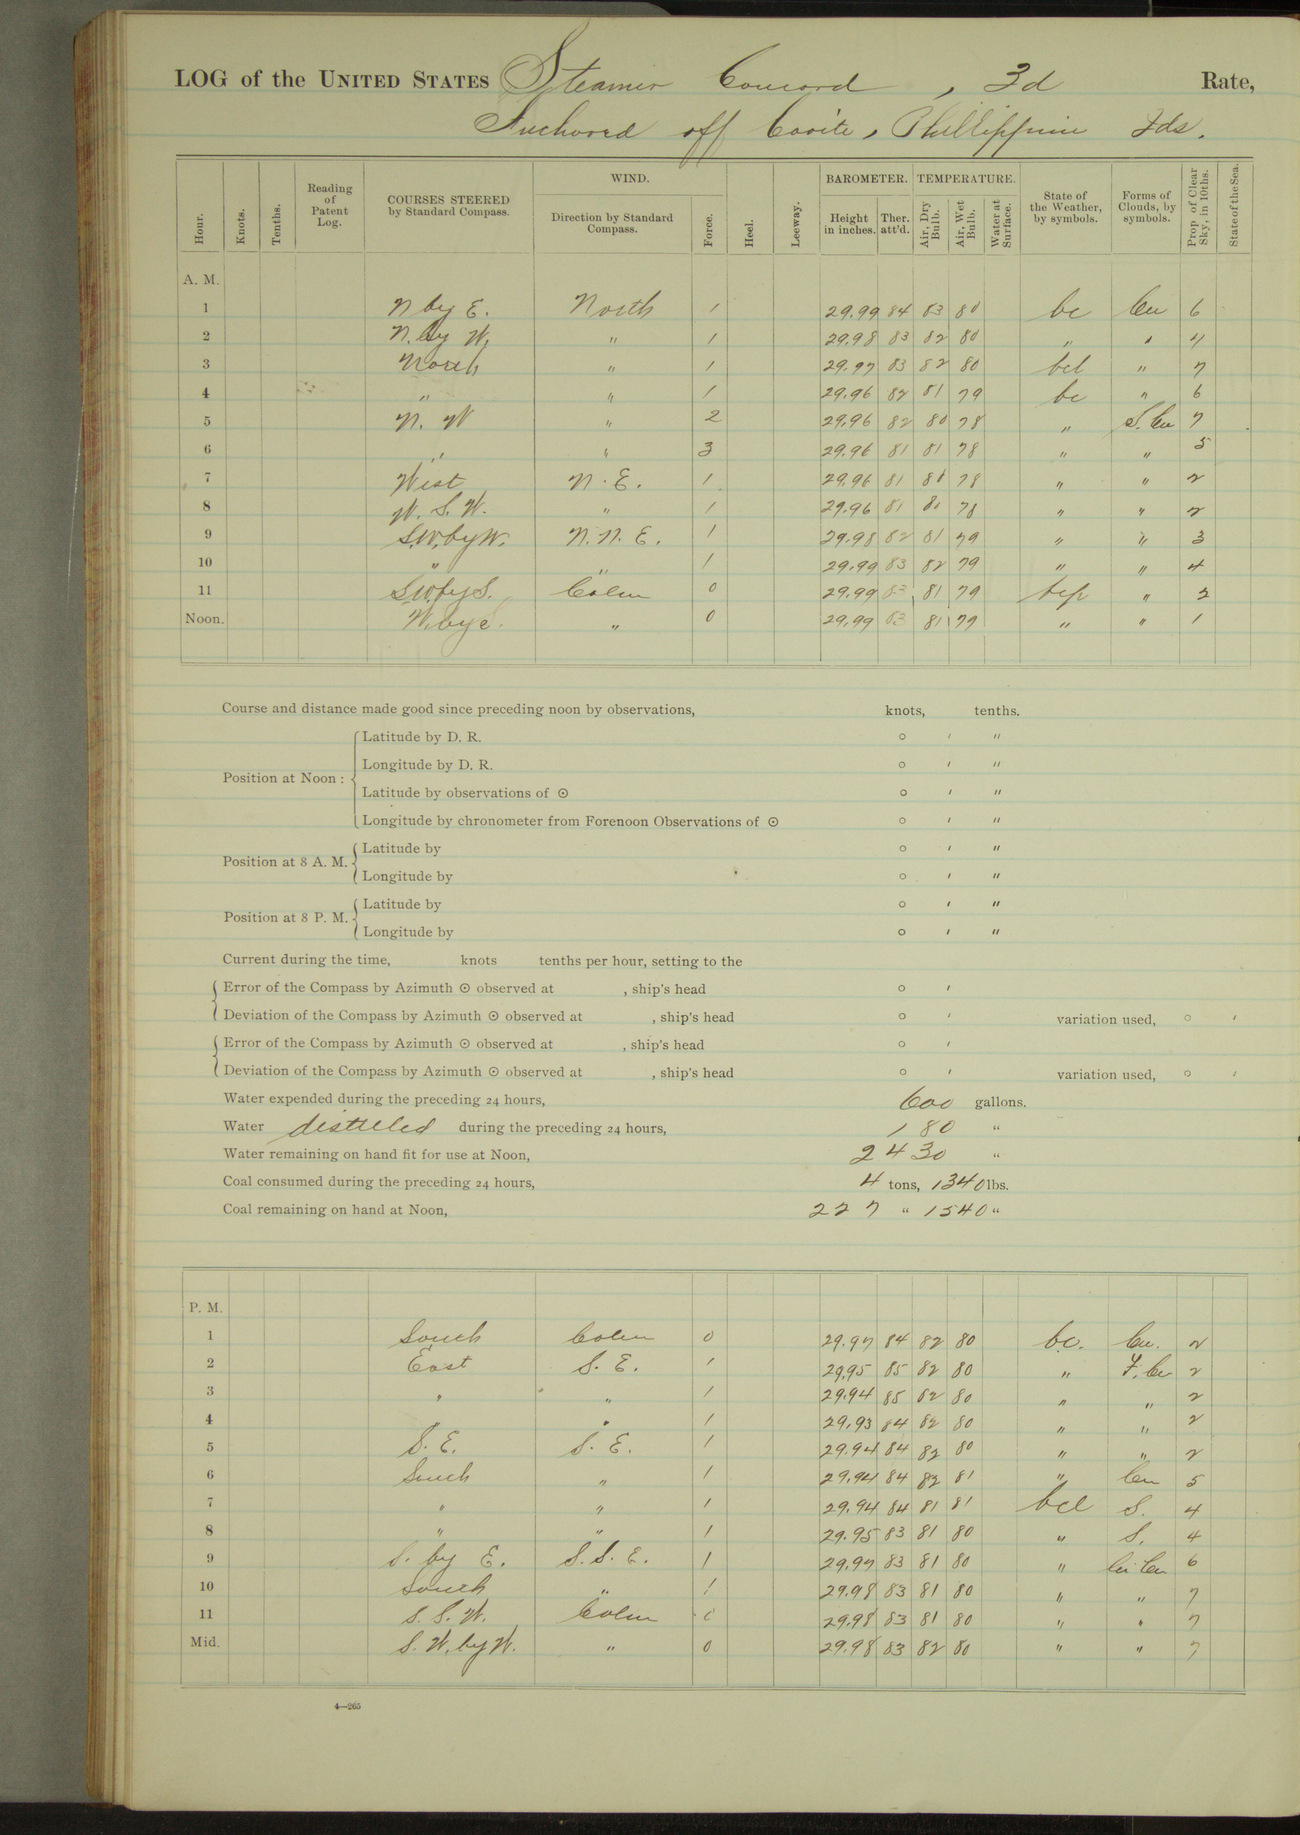 LOG of the UNITED STATES Steamer Concord, 3d Rate,
Anchored off Cavite, Phillippine Ids.
Hour. Knots. Tenths. Reading of Patent Log. COURSES STEERED by Standard Compass. WIND. Direction by Standard Compass. Force. Heel. Leeway. BAROMETER. Height in inches. Ther. att'd. TEMPERATURE. Air, Dry Bulb. Air, Wet Bulb. Water at Surface. State of the Weather, by symbols. Forms of Clouds, by symbols. Prop. of Clear Sky, in 10ths. State of the Sea.
A. M.
1 N by E. North 1 29.99 84 83 80 bc Cu 6
2 N. by W. " 1 29.98 83 82 80 " " 4
3 North " 1 29.97 83 82 80 bcl " 7
4 " " 1 29.96 82 81 79 bc " 6
5 N. W " 2 29.96 82 80 78 " S. Cu 7
6 " " 3 29.96 81 81 78 " " 5
7 West N. E. 1 29.96 81 80 78 " " 2
8 W. S. W. " 1 29.96 81 80 78 " " 2
9 S.W. by W. N. N. E. 1 29.98 82 81 79 " " 3
10 " " 1 29.99 83 82 79 " " 4
11 S.W. by S. Calm 0 29.99 83 81 79 bcp " 2
Noon. W. by S. " 0 29.99 83 81 79 " " 1
Course and distance made good since preceding noon by observations, knots, tenths.
Position at Noon: Latitude by D. R. ° ′ ″
Longitude by D. R. ° ′ ″
Latitude by observations of ⊙ ° ′ ″
Longitude by chronometer from Forenoon Observations of ⊙ ° ′ ″
Position at 8 A. M. Latitude by ° ′ ″
Longitude by ° ′ ″
Position at 8 P. M. Latitude by ° ′ ″
Longitude by ° ′ ″
Current during the time, knots tenths per hour, setting to the
Error of the Compass by Azimuth ⊙ observed at , ship's head ° ′
Deviation of the Compass by Azimuth ⊙ observed at , ship's head ° ′ variation used, ° ′
Error of the Compass by Azimuth ⊙ observed at , ship's head ° ′
Deviation of the Compass by Azimuth ⊙ observed at , ship's head ° ′ variation used, ° ′
Water expended during the preceding 24 hours, 600 gallons.
Water distilled during the preceding 24 hours, 180 "
Water remaining on hand fit for use at Noon, 2430 "
Coal consumed during the preceding 24 hours, 4 tons, 1340 lbs.
Coal remaining on hand at Noon, 227 " 1540 "
P. M.
1 South Calm 0 29.97 84 82 80 bc. Cu. 2
2 East S. E. 1 29.95 85 82 80 " Cu 2
3 " " 1 29.94 85 82 80 " " 2
4 " " 1 29.93 84 82 80 " " 2
5 S. E. S. E. 1 29.94 84 82 80 " " 2
6 South " 1 29.94 84 82 81 " Cu 5
7 " " 1 29.94 84 81 81 bcl S. 4
8 " " 1 29.95 83 81 80 " S. 4
9 S. by E. S. S. E. 1 29.97 83 81 80 " Ci Cu 6
10 South " 1 29.98 83 81 80 " " 7
11 S. S. W. Calm 0 29.98 83 81 80 " " 7
Mid. S. W. by W. " 0 29.98 83 82 80 " " 7
4—265